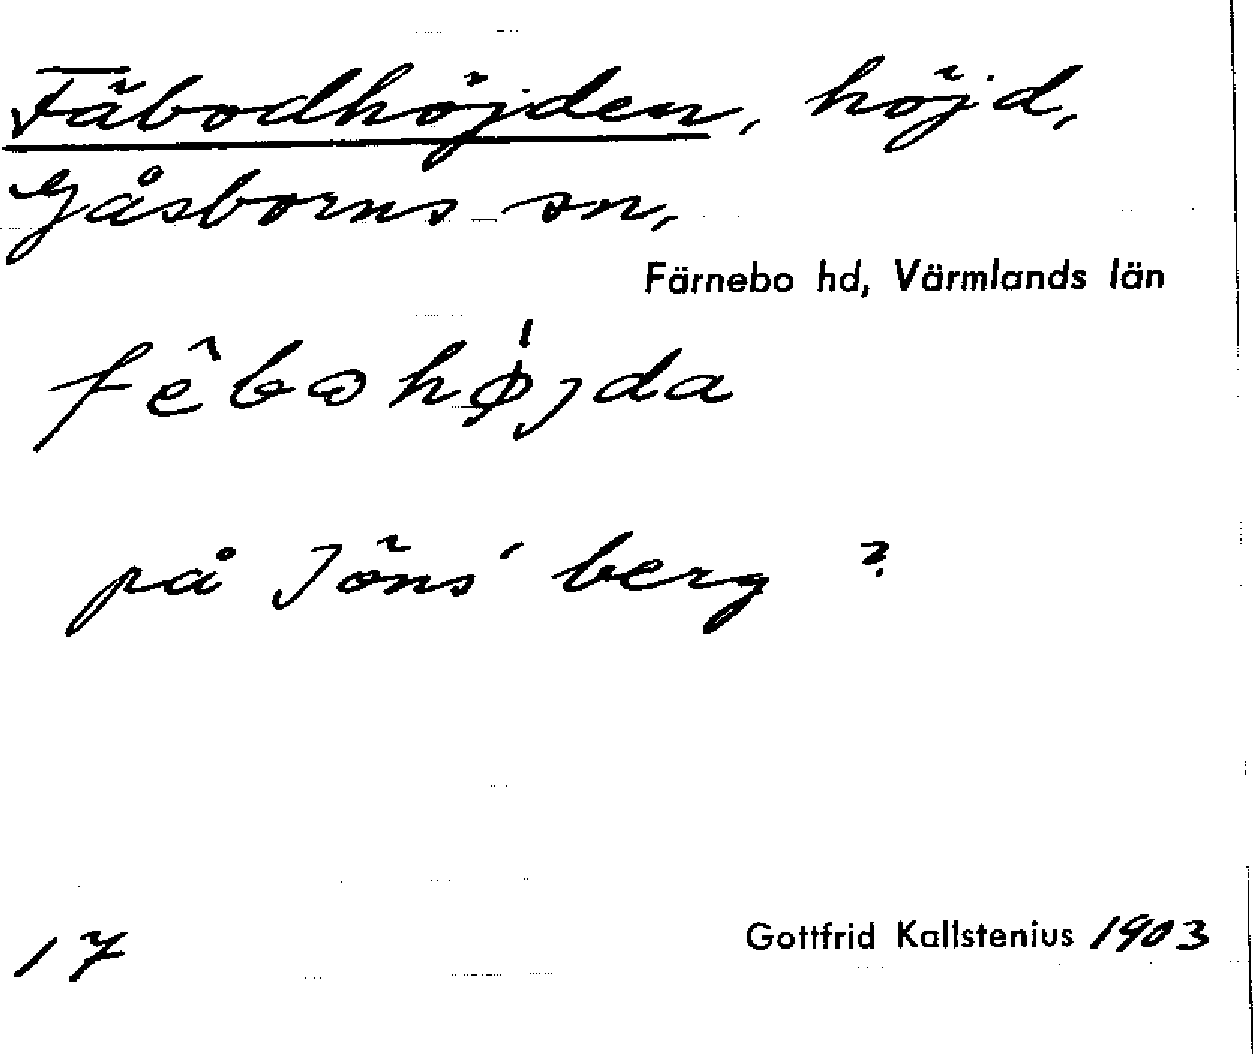 Fäbodhöjden, höjd,
Gåsborns sn,
Färnebo hd, Värmlands län
fêbⱷhø̍jda
på Jöns' berg ?
17
Gottfrid Kallstenius 1903